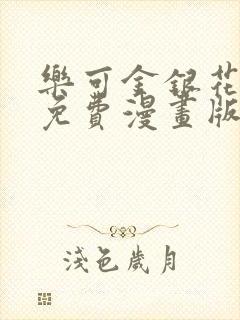 樂可金銀花
免費漫畫版
淺色歲月